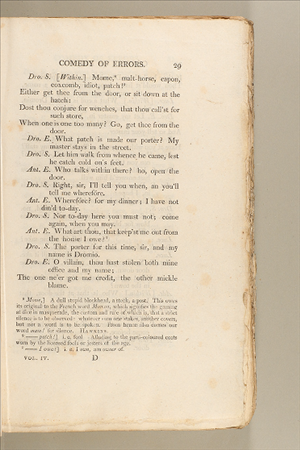 COMEDY OF ERRORS. 29
Dro. S. [Within.] Mome,⁸ malt-horse, capon,
coxcomb, idiot, patch!⁹
Either get thee from the door, or sit down at the
hatch:
Dost thou conjure for wenches, that thou call'st for
such store,
When one is one too many? Go, get thee from the
door.
Dro. E. What patch is made our porter? My
master stays in the street.
Dro. S. Let him walk from whence he came, lest
he catch cold on's feet.
Ant. E. Who talks within there? ho, open the
door.
Dro. S. Right, sir, I'll tell you when, an you'll
tell me wherefore.
Ant. E. Wherefore? for my dinner; I have not
din'd to-day.
Dro. S. Nor to-day here you must not; come
again, when you may.
Ant. E. What art thou, that keep'st me out from
the house I owe?¹
Dro. S. The porter for this time, sir, and my
name is Dromio.
Dro. E. O villain, thou hast stolen both mine
office and my name;
The one ne'er got me credit, the other mickle
blame.
⁸ Mome,] A dull stupid blockhead, a stock, a post. This owes
its original to the French word Momon, which signifies the gaming
at dice in masquerade, the custom and rule of which is, that a strict
silence is to be observed: whatever sum one stakes, another covers,
but not a word is to be spoken. From hence also comes our
word mum! for silence. HAWKINS.
⁹ —— patch!] i. e. fool. Alluding to the parti-coloured coats
worn by the licensed fools or jesters of the age.
¹ —— I owe?] i. e. I own, am owner of.
VOL. IV. D